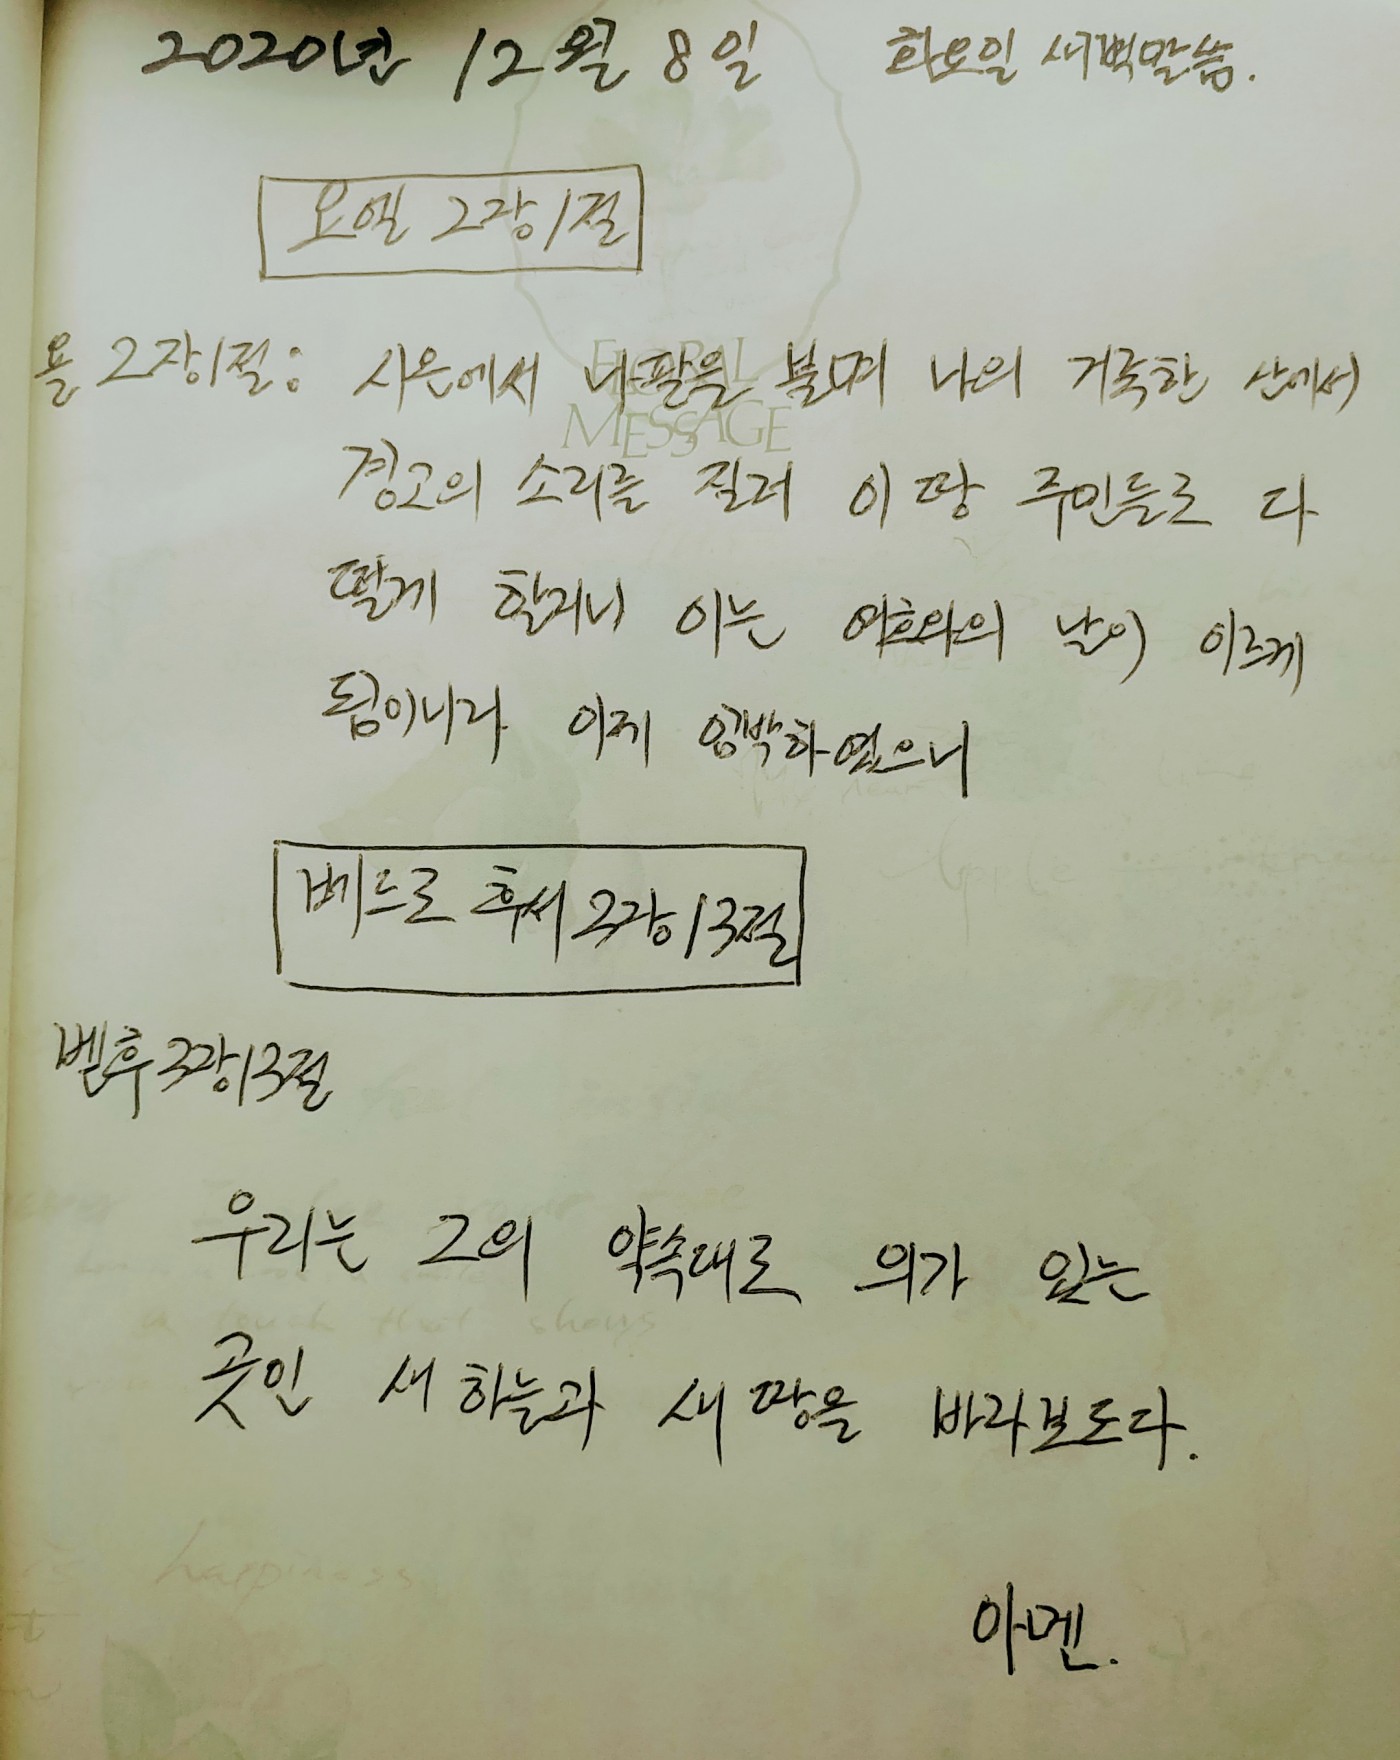 2020년 12월 8일 화요일 새벽말씀.
요엘 2장1절
욜 2장1절: 시온에서 나팔을 불며 나의 거룩한 산에서
FLORAL
MESSAGE
경고의 소리를 질러 이 땅 주민들로 다
떨게 할지니 이는 여호와의 날이 이르게
됨이니라 이제 임박하였으니
베드로 후서 3장13절
벧후 3장13절
우리는 그의 약속대로 의가 있는
곳인 새 하늘과 새 땅을 바라보도다.
happiness
아멘.